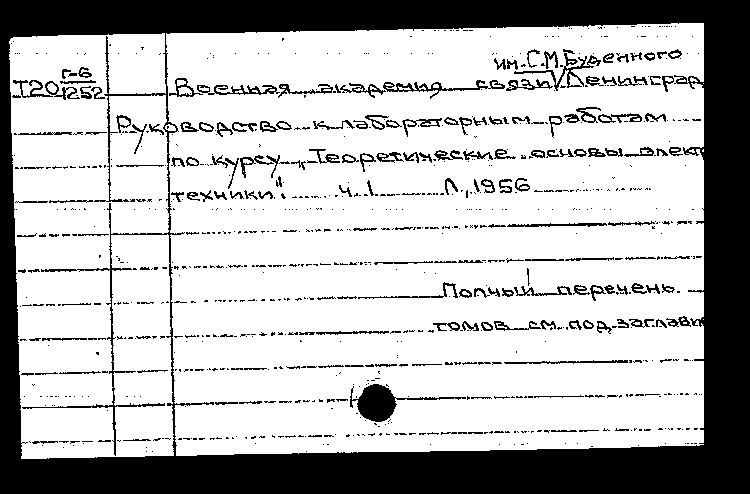 им. С.М. Буденного
Т20 г-6/1252 Военная академия связи Ленинград
Руководство к лабораторным работам
по курсу „Теоретические основы элект
техники". ч. 1 Л., 1956
Полный перечень
томов см. под заглави